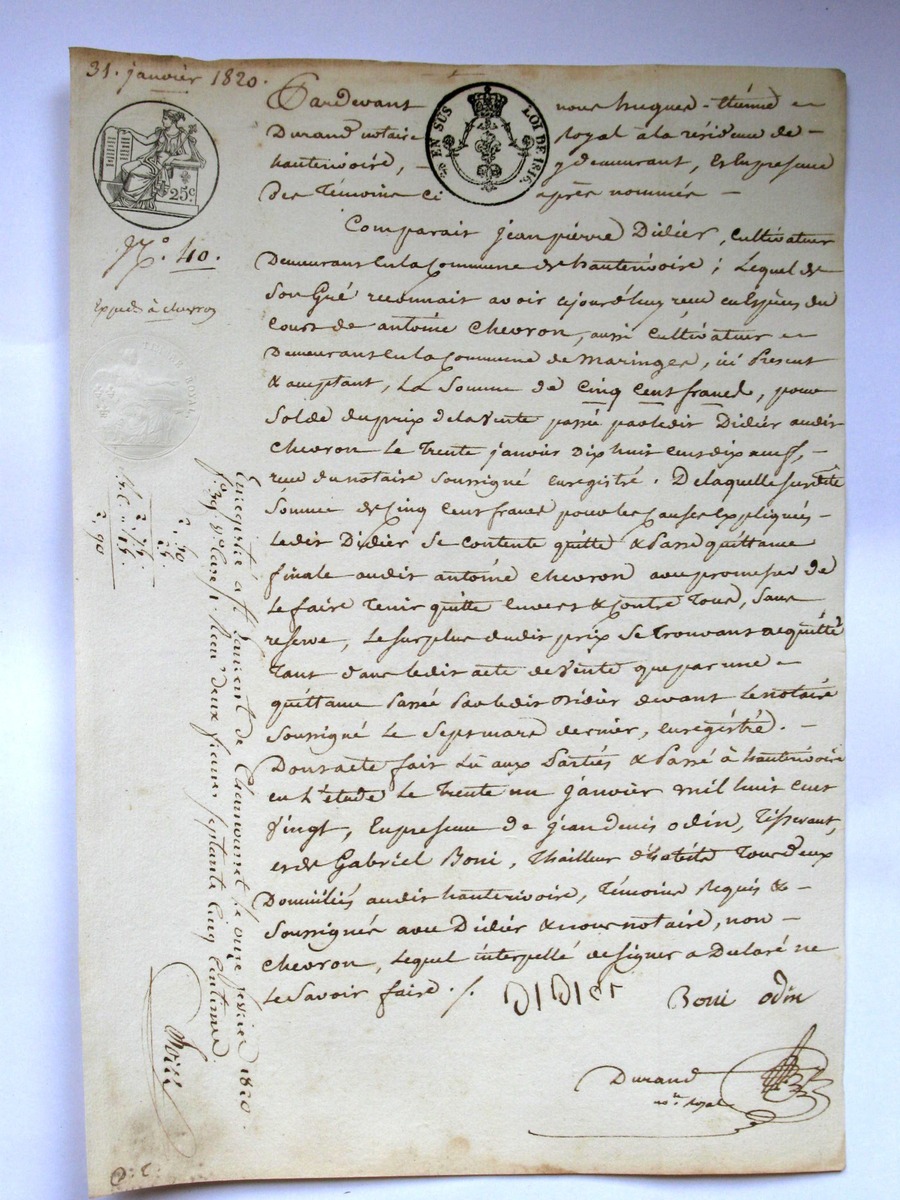 31. janvier 1820.
EN SUS
LOI DE 1816.
25c
TIMBRE ROYAL
N.° 40.
Expedié à chevron
Pardevant nous hugues - Etienne
Durand notaire royal à la résidence de -
hauterivoire, - y demeurant, Et En presence
Des Témoins ci après nommés -
Comparait jean pierre Didier, Cultivateur
Demeurant En la Commune de hauterivoire ; Lequel de
Son Gré reconnait avoir cejourd'huy reçu en Espèces du
Cours de antoine Chevron, aussi Cultivateur
Demeurant En la Commune de Maringes, ici Présent
& acceptant, La Somme de Cinq Cent francs, pour
Solde du prix de la Vente passée par ledit Didier audit
Chevron Le Trente janvier Dix huit Cent dix neuf, -
reçue du notaire Soussigné Enregistré. De laquelle susdite
Somme de Cinq Cent francs pour les Causes Expliquées
Ledit Didier Se Contente quitte & Passe quittance
finale audit antoine Chevron avec promesse de
Le faire Tenir quitte Envers & Contre Tous, Sans
reserve, Le surplus dudit prix Se Trouvant acquitté
Tant dans ledit acte de Vente que par une -
quittance Passée Par ledit Didier devant Le notaire
Soussigné Le Sept mars dernier, Enregistré. -
Dont acte fait Lû aux Parties & Passé à hauterivoire
en L'étude Le Trente un janvier Mil huit Cent
Vingt, En presence de jean Denis Odin, Tisserant,
et de Gabriel Boni, Thailleur d'habits Tous deux
Domiciliés audit hauterivoire, Témoins Requis & -
Soussignés avec Didier & nous notaire, non -
Chevron, Lequel interpellé de signer a Déclaré ne
Le Savoir faire. /.
DIDIER Boni odin
Durand
nre. royal
Enregistré à St Laurent de Chamousset le onze fevrier 1820
Reçu deux francs septante Cinq Centimes.
2, 75
2, 90